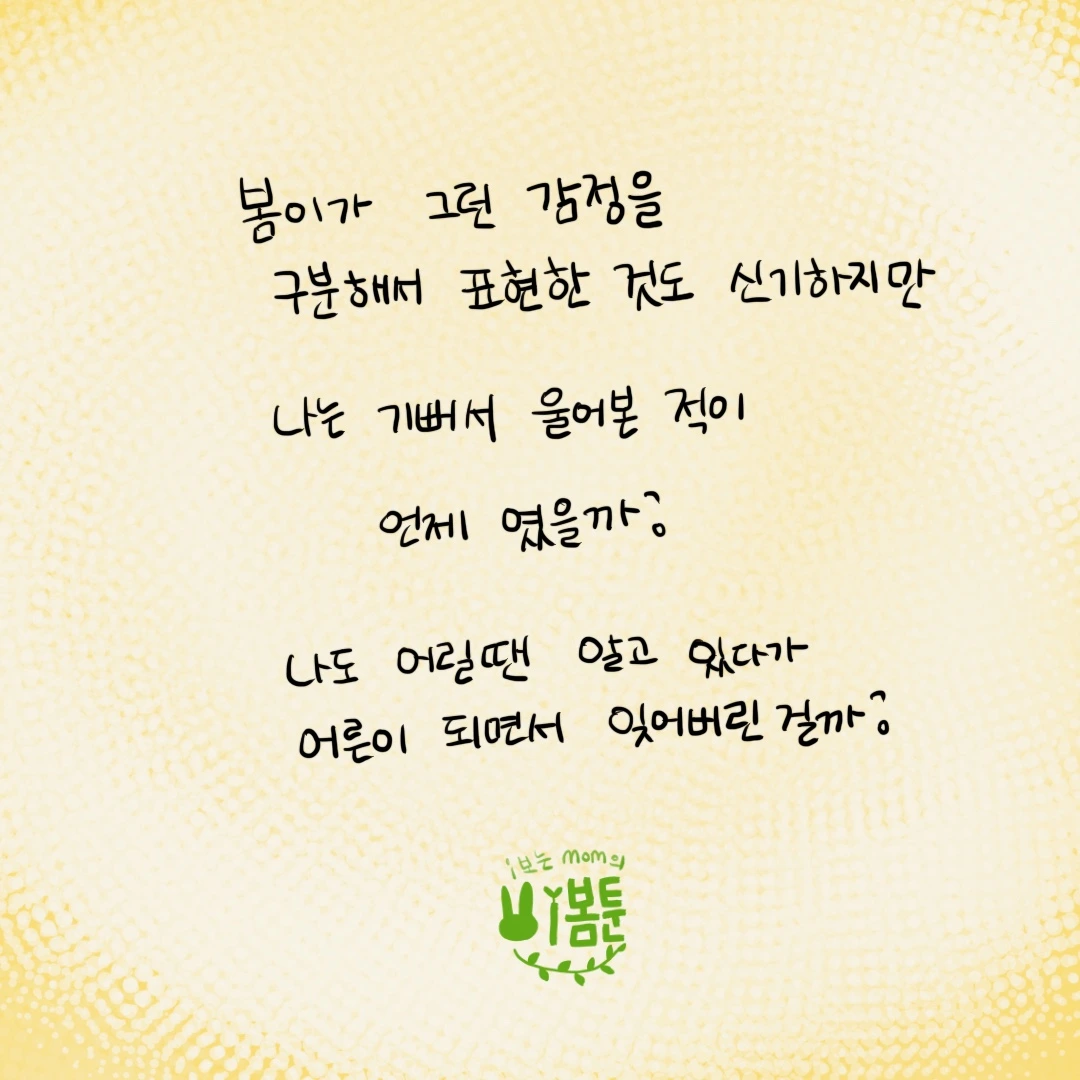 봄이가 그런 감정을
구분해서 표현한 것도 신기하지만
나는 기뻐서 울어본 적이
언제 였을까?
나도 어릴땐 알고 있다가
어른이 되면서 잊어버린걸까?
i보는 mom의
i봄툰